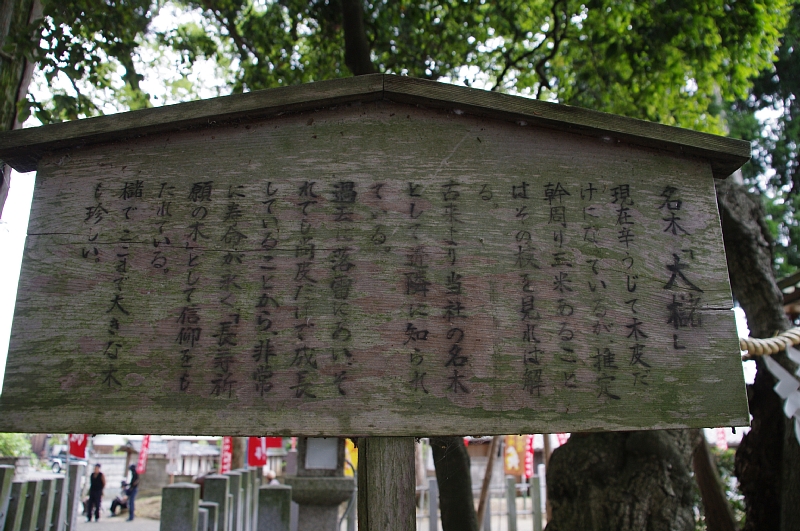 名木「大櫧」
現在辛うじて木皮だ
けになっているが、推定
幹周り五米あること
はその根を見れば解
る。
古来より当社の名木
として近隣に知られ
ている。
過去、落雷にあい、そ
れでも尚皮だけで成長
していることから、非常
に寿命が永く「長寿祈
願の木」として信仰をも
たれている。
櫧でここまで大きな木
も珍しい。